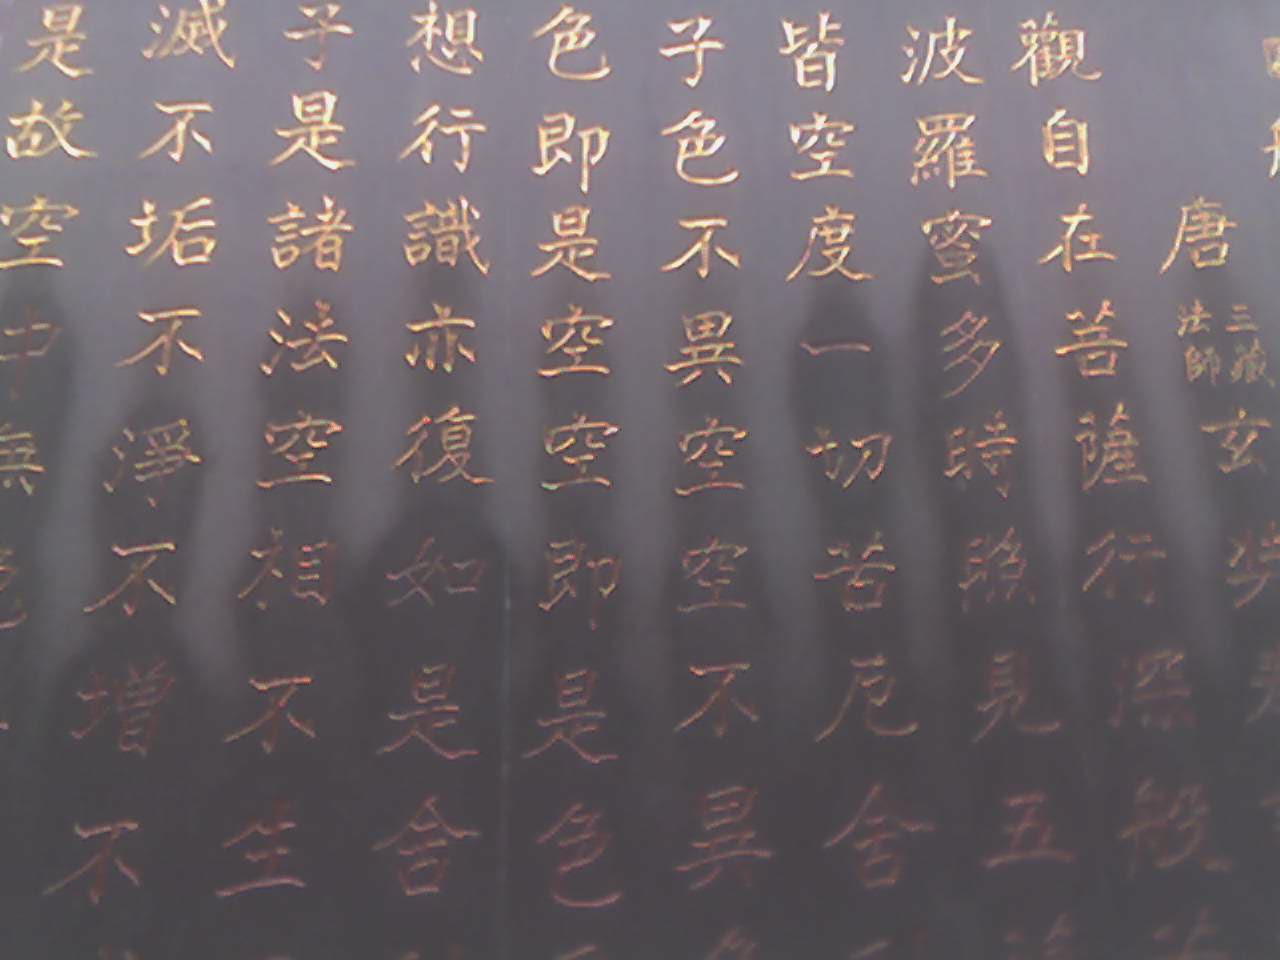 唐三藏法師玄奘
觀自在菩薩行深般
波羅蜜多時照見五
皆空度一切苦厄舍
子色不異空空不異
色即是空空即是色
想行識亦復如是舍
子是諸法空相不生
滅不垢不淨不增不
是故空中無色